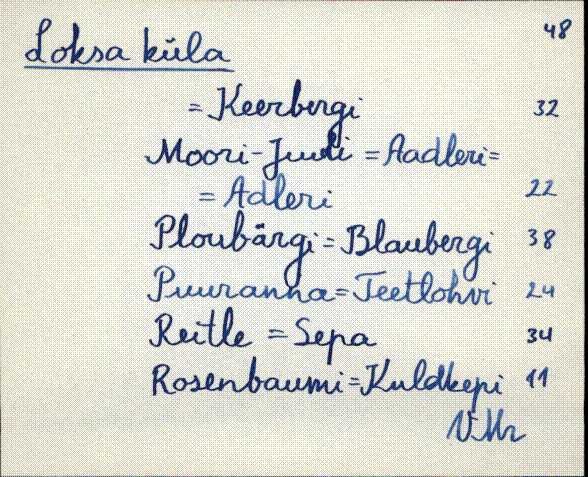 Loksa küla 48
= Keerbergi 32
Moori-Juuli = Aadleri =
= Adleri 22
Ploubärgi = Blaubergi 38
Puuranna = Teetlohvi 24
Reitle = Sepa 34
Rosenbaumi = Kuldkepi 11